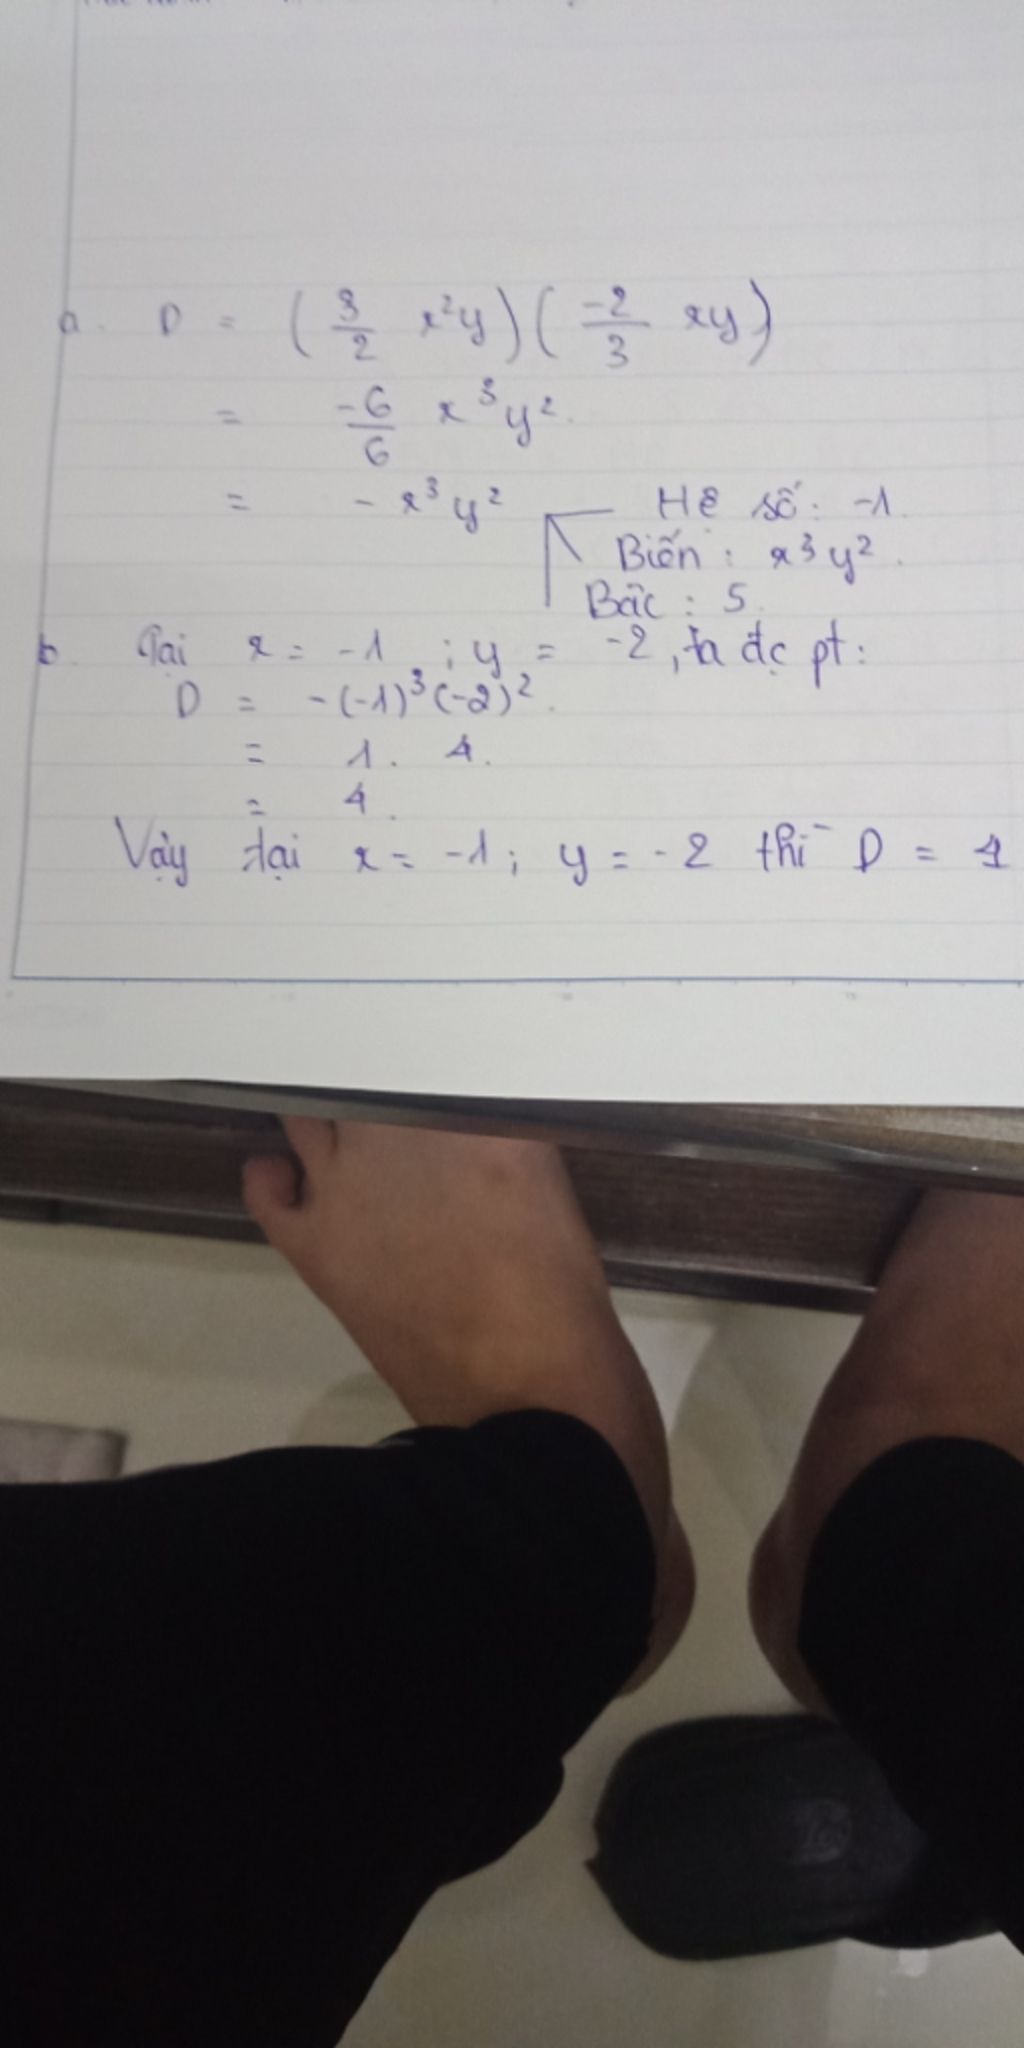 a. D = (3/2 x²y)(-2/3 xy)
= -6/6 x³y².
= -x³y² Hệ số: -1.
Biến: x³y².
Bậc: 5.
b. Tại x = -1; y = -2, ta đc pt:
D = -(-1)³(-2)².
= 1. 4.
= 4.
Vậy tại x = -1; y = -2 thì D =